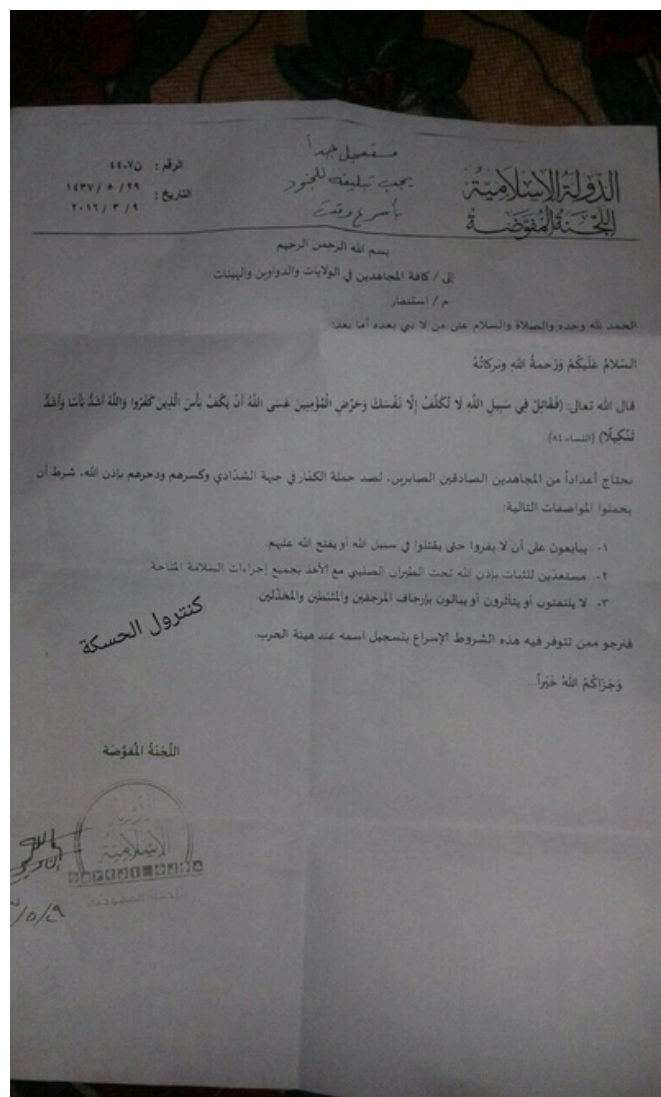 الدولة الإسلامية
اللجنة المفوضة
مستعجل جداً
يجب تبليغه للجنود
بأسرع وقت
الرقم : ن٤٤٠٧
التاريخ : ٢٩ / ٥ / ١٤٣٧
٩ / ٣ / ٢٠١٦
بسم الله الرحمن الرحيم
إلى / كافة المجاهدين في الولايات والدواوين والهيئات
م / استنفار
الحمد لله وحده والصلاة والسلام على من لا نبي بعده أما بعد:
السَّلامُ عَلَيكُمْ وَرَحمةُ اللهِ وبَركاتُهُ
قال الله تعالى: (فَقَاتِلْ فِي سَبِيلِ اللَّهِ لَا تُكَلَّفُ إِلَّا نَفْسَكَ وَحَرِّضِ الْمُؤْمِنِينَ عَسَى اللَّهُ أَنْ يَكُفَّ بَأْسَ الَّذِينَ كَفَرُوا وَاللَّهُ أَشَدُّ بَأْسًا وَأَشَدُّ
تَنْكِيلًا) [النساء ٨٤]
نحتاج أعداداً من المجاهدين الصادقين الصابرين، لصد حملة الكفار في جبهة الشدّادي وكسرهم ودحرهم بإذن الله، شرط أن
يحملوا المواصفات التالية:
١- يبايعون على أن لا يفروا حتى يقتلوا في سبيل الله أو يفتح الله عليهم
٢- مستعدّين للثبات بإذن الله تحت الطيران الصليبي مع الأخذ بجميع إجراءات السلامة المتاحة.
٣- لا يلتفتون أو يتأثرون أو يبالون بإرجاف المرجفين والمثبّطين والمخذّلين.
كنترول الحسكة
فنرجو ممن تتوفر فيه هذه الشروط الإسراع بتسجيل اسمه عند هيئة الحرب.
وَجَزَاكُمُ اللهُ خَيْراً...
اللّجْنَةُ الْمُفَوَّضَة
الإسلامية